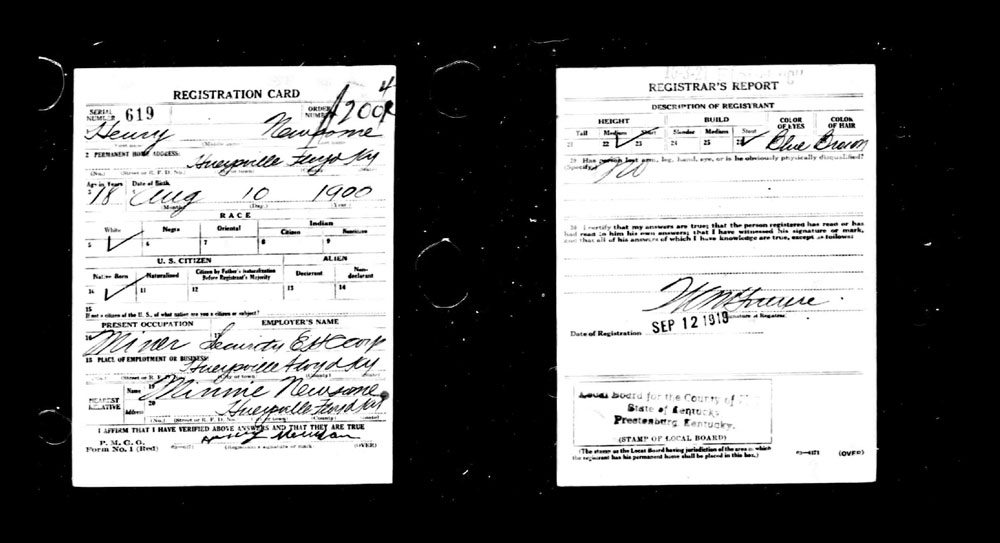 REGISTRATION CARD
SERIAL NUMBER 619 ORDER NUMBER
Henry Newsome
2 PERMANENT HOME ADDRESS: Hueysville Floyd Ky
(No.) (Street or R. F. D. No.) (City or town) (County) (State)
Age in Years Date of Birth
3 18 Aug 10 1900
(Month) (Day) (Year)
RACE
White Negro Oriental Indian
Citizen Noncitizen
5 6 7 8 9
U. S. CITIZEN ALIEN
Native Born Naturalized Citizen by Father's Naturalization Before Registrant's Majority Declarant Non-declarant
10 11 12 13 14
15
If not a citizen of the U. S., of what nation are you a citizen or subject?
PRESENT OCCUPATION EMPLOYER'S NAME
16 Miner 17 Security
18 PLACE OF EMPLOYMENT OR BUSINESS:
Hueysville Floyd Ky
(No.) (Street or R. F. D. No.) (City or town) (County) (State)
NEAREST RELATIVE Name 19 Minnie Newsome
Address 20 Hueysville Floyd Ky
(No.) (Street or R. F. D. No.) (City or town) (County) (State)
I AFFIRM THAT I HAVE VERIFIED ABOVE ANSWERS AND THAT THEY ARE TRUE
P. M. G. O.
Form No. 1 (Red) (Registrant's signature or mark) (OVER)
REGISTRAR'S REPORT
DESCRIPTION OF REGISTRANT
HEIGHT BUILD COLOR OF EYES COLOR OF HAIR
Tall Medium Short Slender Medium Stout
21 22 23 24 25 26 Blue Brown
29 Has person lost arm, leg, hand, eye, or is he obviously physically disqualified?
(Specify) No
30 I certify that my answers are true; that the person registered has read or has
had read to him his own answers; that I have witnessed his signature or mark,
and that all of his answers of which I have knowledge are true, except as follows:
(Signature of Registrar)
Date of Registration SEP 12 1918
Local Board for the County of
State of Kentucky
Prestonsburg Kentucky.
(STAMP OF LOCAL BOARD)
(The stamp of the Local Board having jurisdiction of the area in which
the registrant has his permanent home shall be placed in this box.)
(OVER)